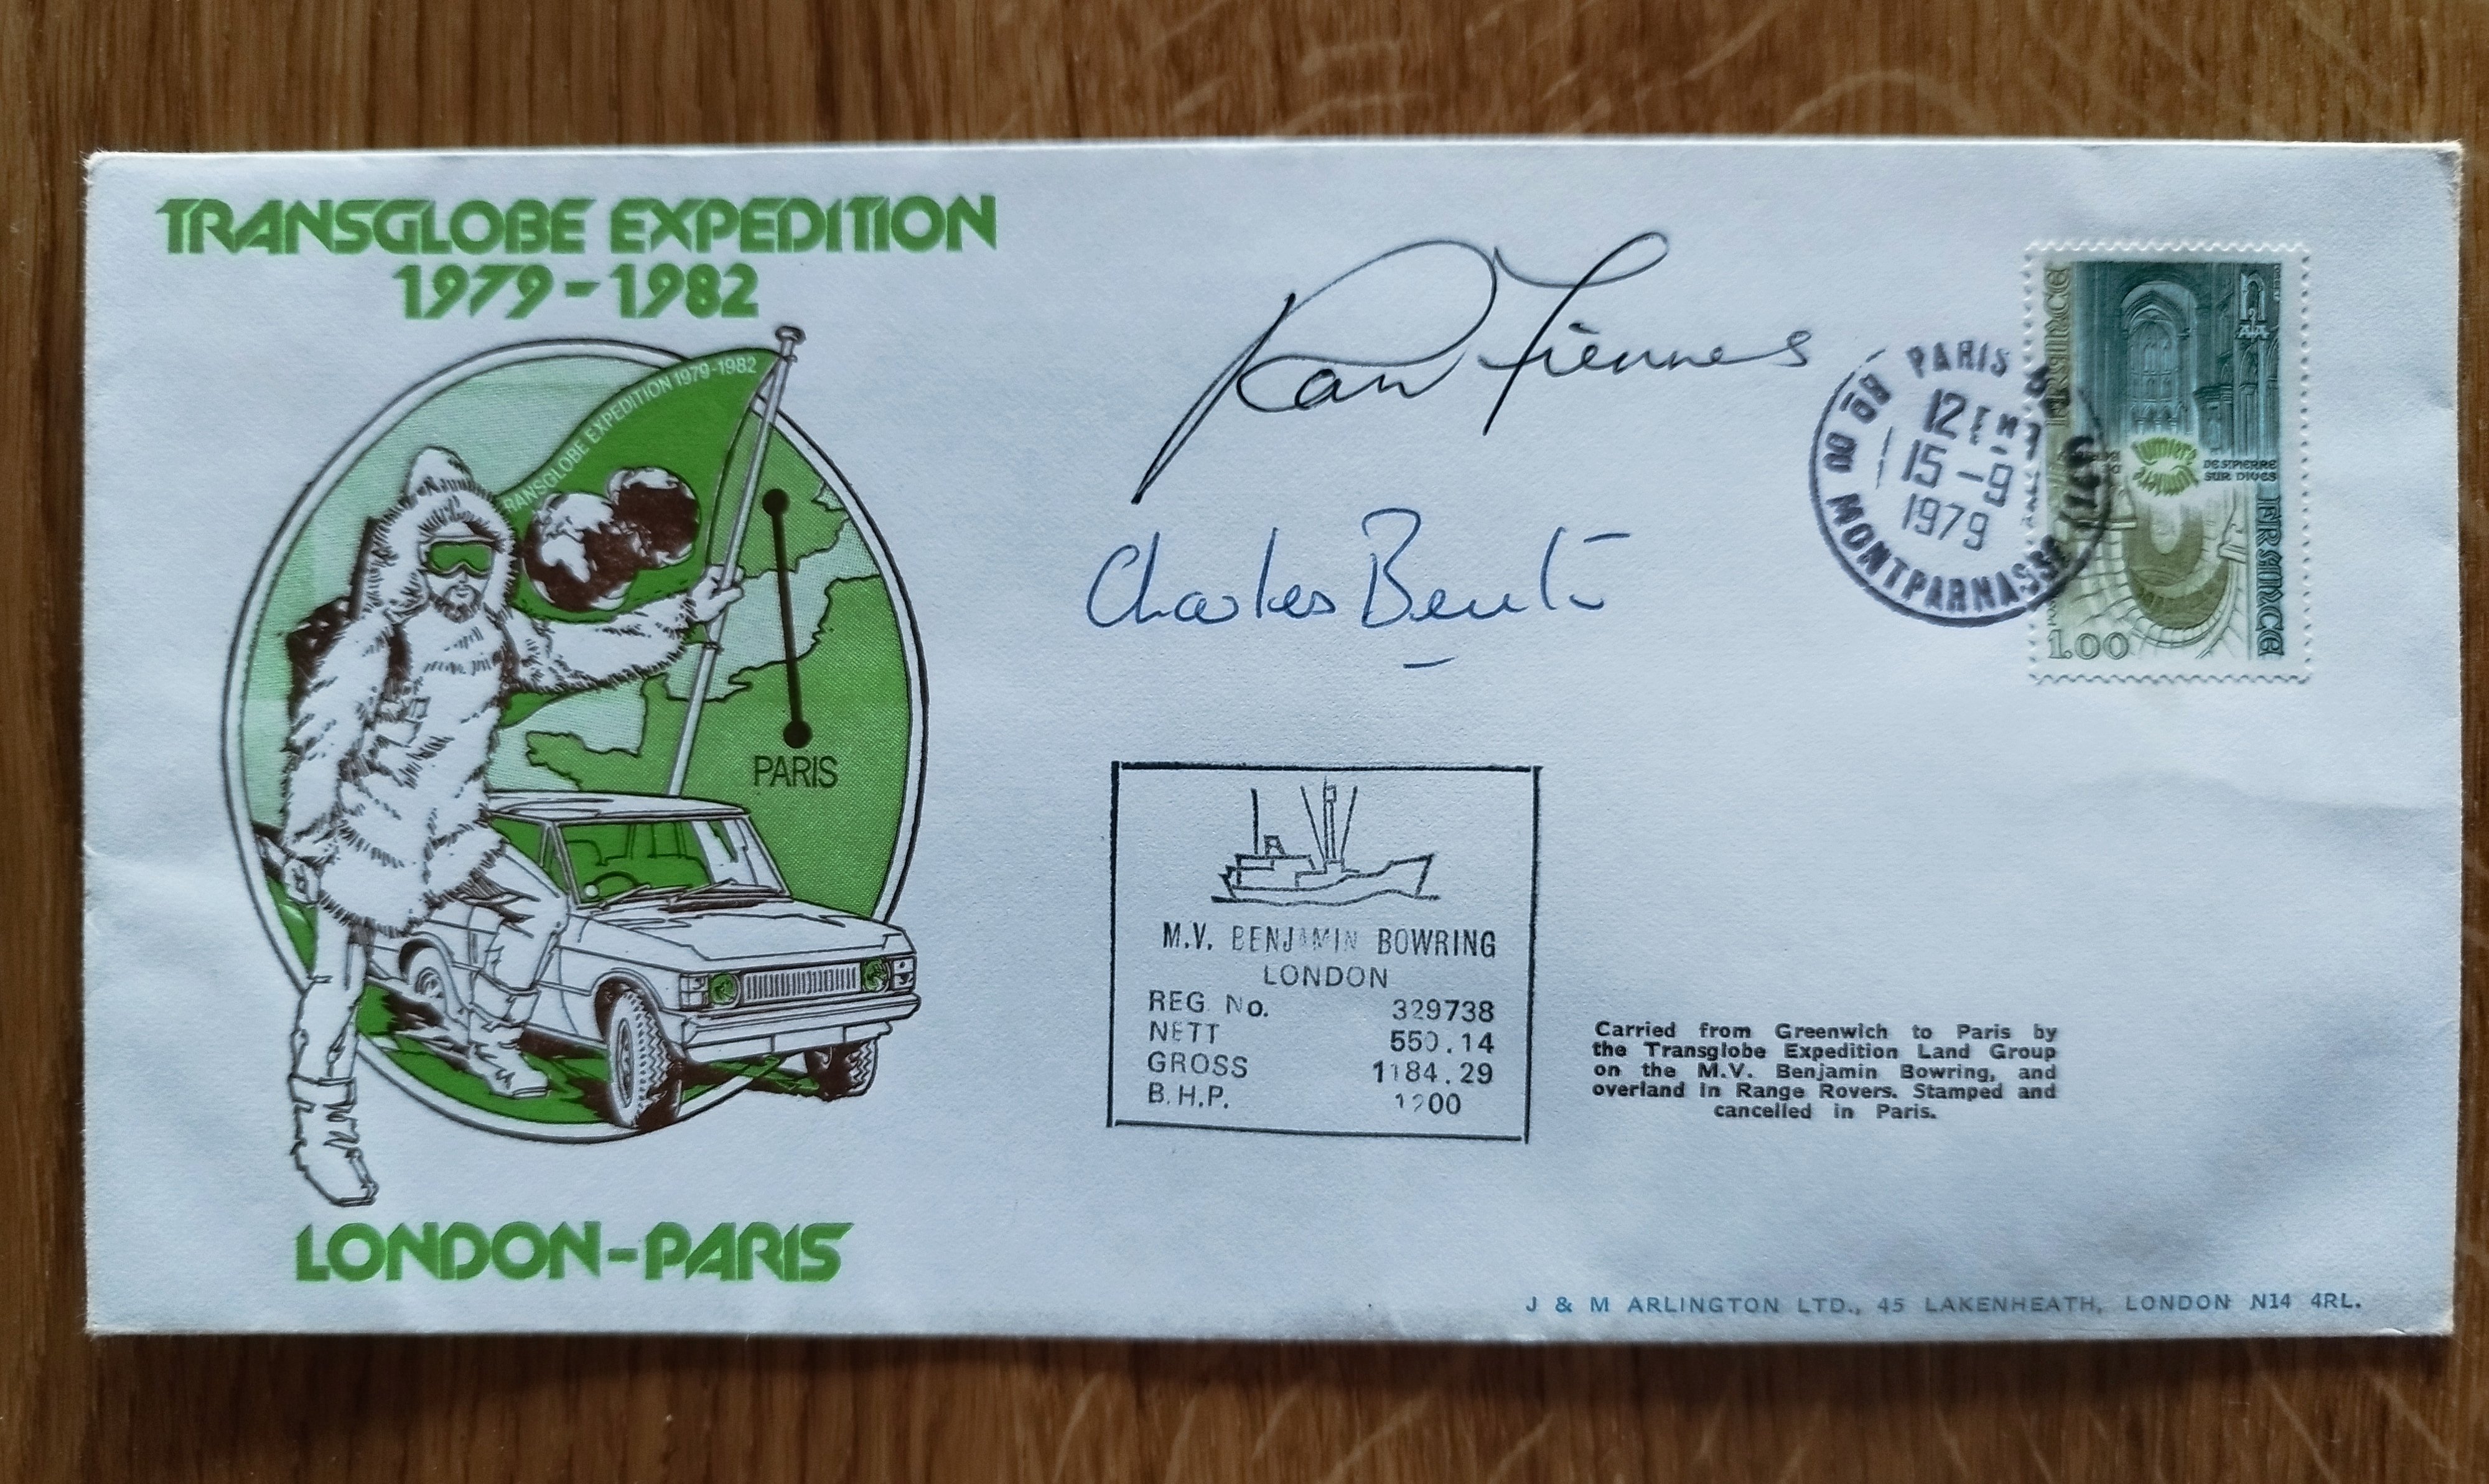 TRANSGLOBE EXPEDITION
1979-1982
TRANSGLOBE EXPEDITION 1979-1982
PARIS
LONDON-PARIS
Ran Fiennes
Charles Burton
M.V. BENJAMIN BOWRING
LONDON
REG. No. 329738
NETT 550.14
GROSS 1184.29
B.H.P. 1200
PARIS
12 H
15-9
1979
MONTPARNASSE
FRANCE
lumière
DE ST PIERRE
SUR DIVES
FRANCE
1.00
Carried from Greenwich to Paris by
the Transglobe Expedition Land Group
on the M.V. Benjamin Bowring, and
overland in Range Rovers. Stamped and
cancelled in Paris.
J & M ARLINGTON LTD., 45 LAKENHEATH, LONDON N14 4RL.